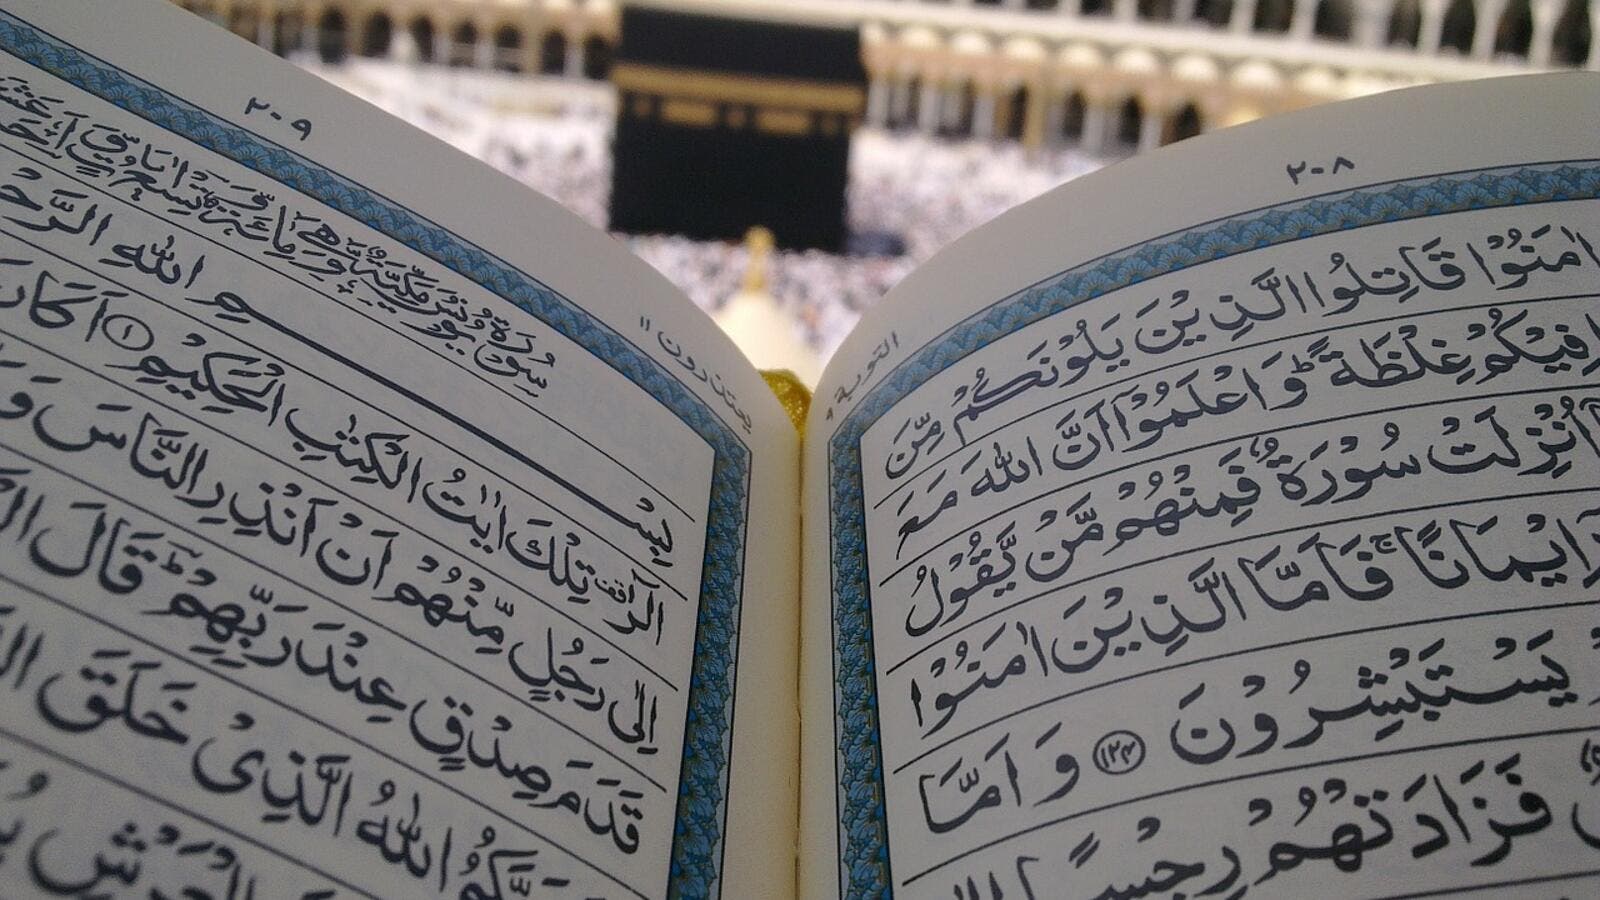 ٢٠٨
التوبة ٩
اٰمَنُوْا قَاتِلُوا الَّذِيْنَ يَلُوْنَكُمْ مِّنَ
فِيْكُمْ غِلْظَةً ؕ وَاعْلَمُوْۤا اَنَّ اللّٰهَ مَعَ
اُنْزِلَتْ سُوْرَةٌ فَمِنْهُمْ مَّنْ يَّقُوْلُ
اِيْمَانًا ۚ فَاَمَّا الَّذِيْنَ اٰمَنُوْا
يَسْتَبْشِرُوْنَ ﴿١٢٤﴾ وَاَمَّا
فَزَادَتْهُمْ رِجْسًا
٢٠٩
يعتذرون ١١
سُوْرَةُ يُوْنُسَ مَكِّيَّةٌ وَّ هِيَ مِائَةٌ وَّ تِسْعُ اٰيَاتٍ وَّ
بِسْمِ اللّٰهِ
الٓرٰ ۟ تِلْكَ اٰيٰتُ الْكِتٰبِ الْحَكِيْمِ ﴿١﴾ اَكَانَ
اِلٰى رَجُلٍ مِّنْهُمْ اَنْ اَنْذِرِ النَّاسَ وَ
قَدَمَ صِدْقٍ عِنْدَ رَبِّهِمْ ؕ قَالَ
اللّٰهُ الَّذِيْ خَلَقَ
الْعَرْشِ